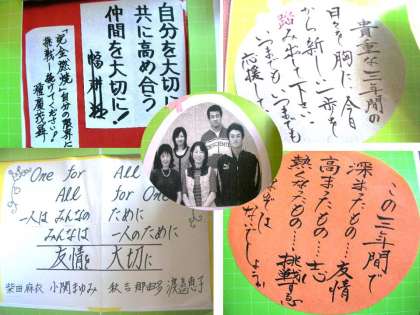 自分を大切に
共に高め合う
仲間を大切に!
幡耕社
「完全燃焼」自分の限界に
挑戦し続けてください!
貴重な三年間の
日々を胸に、今日
から新しい一歩を
踏み出して下さい
いつまでもいつまでも
応援して
One for All
All for One
一人は みんなの ために
みんなは 一人のために
友情を 大切に
柴田麻衣 小関まゆみ
この三年間で
深まったもの…友情
高まったもの…志
熱くなったもの…挑戦する